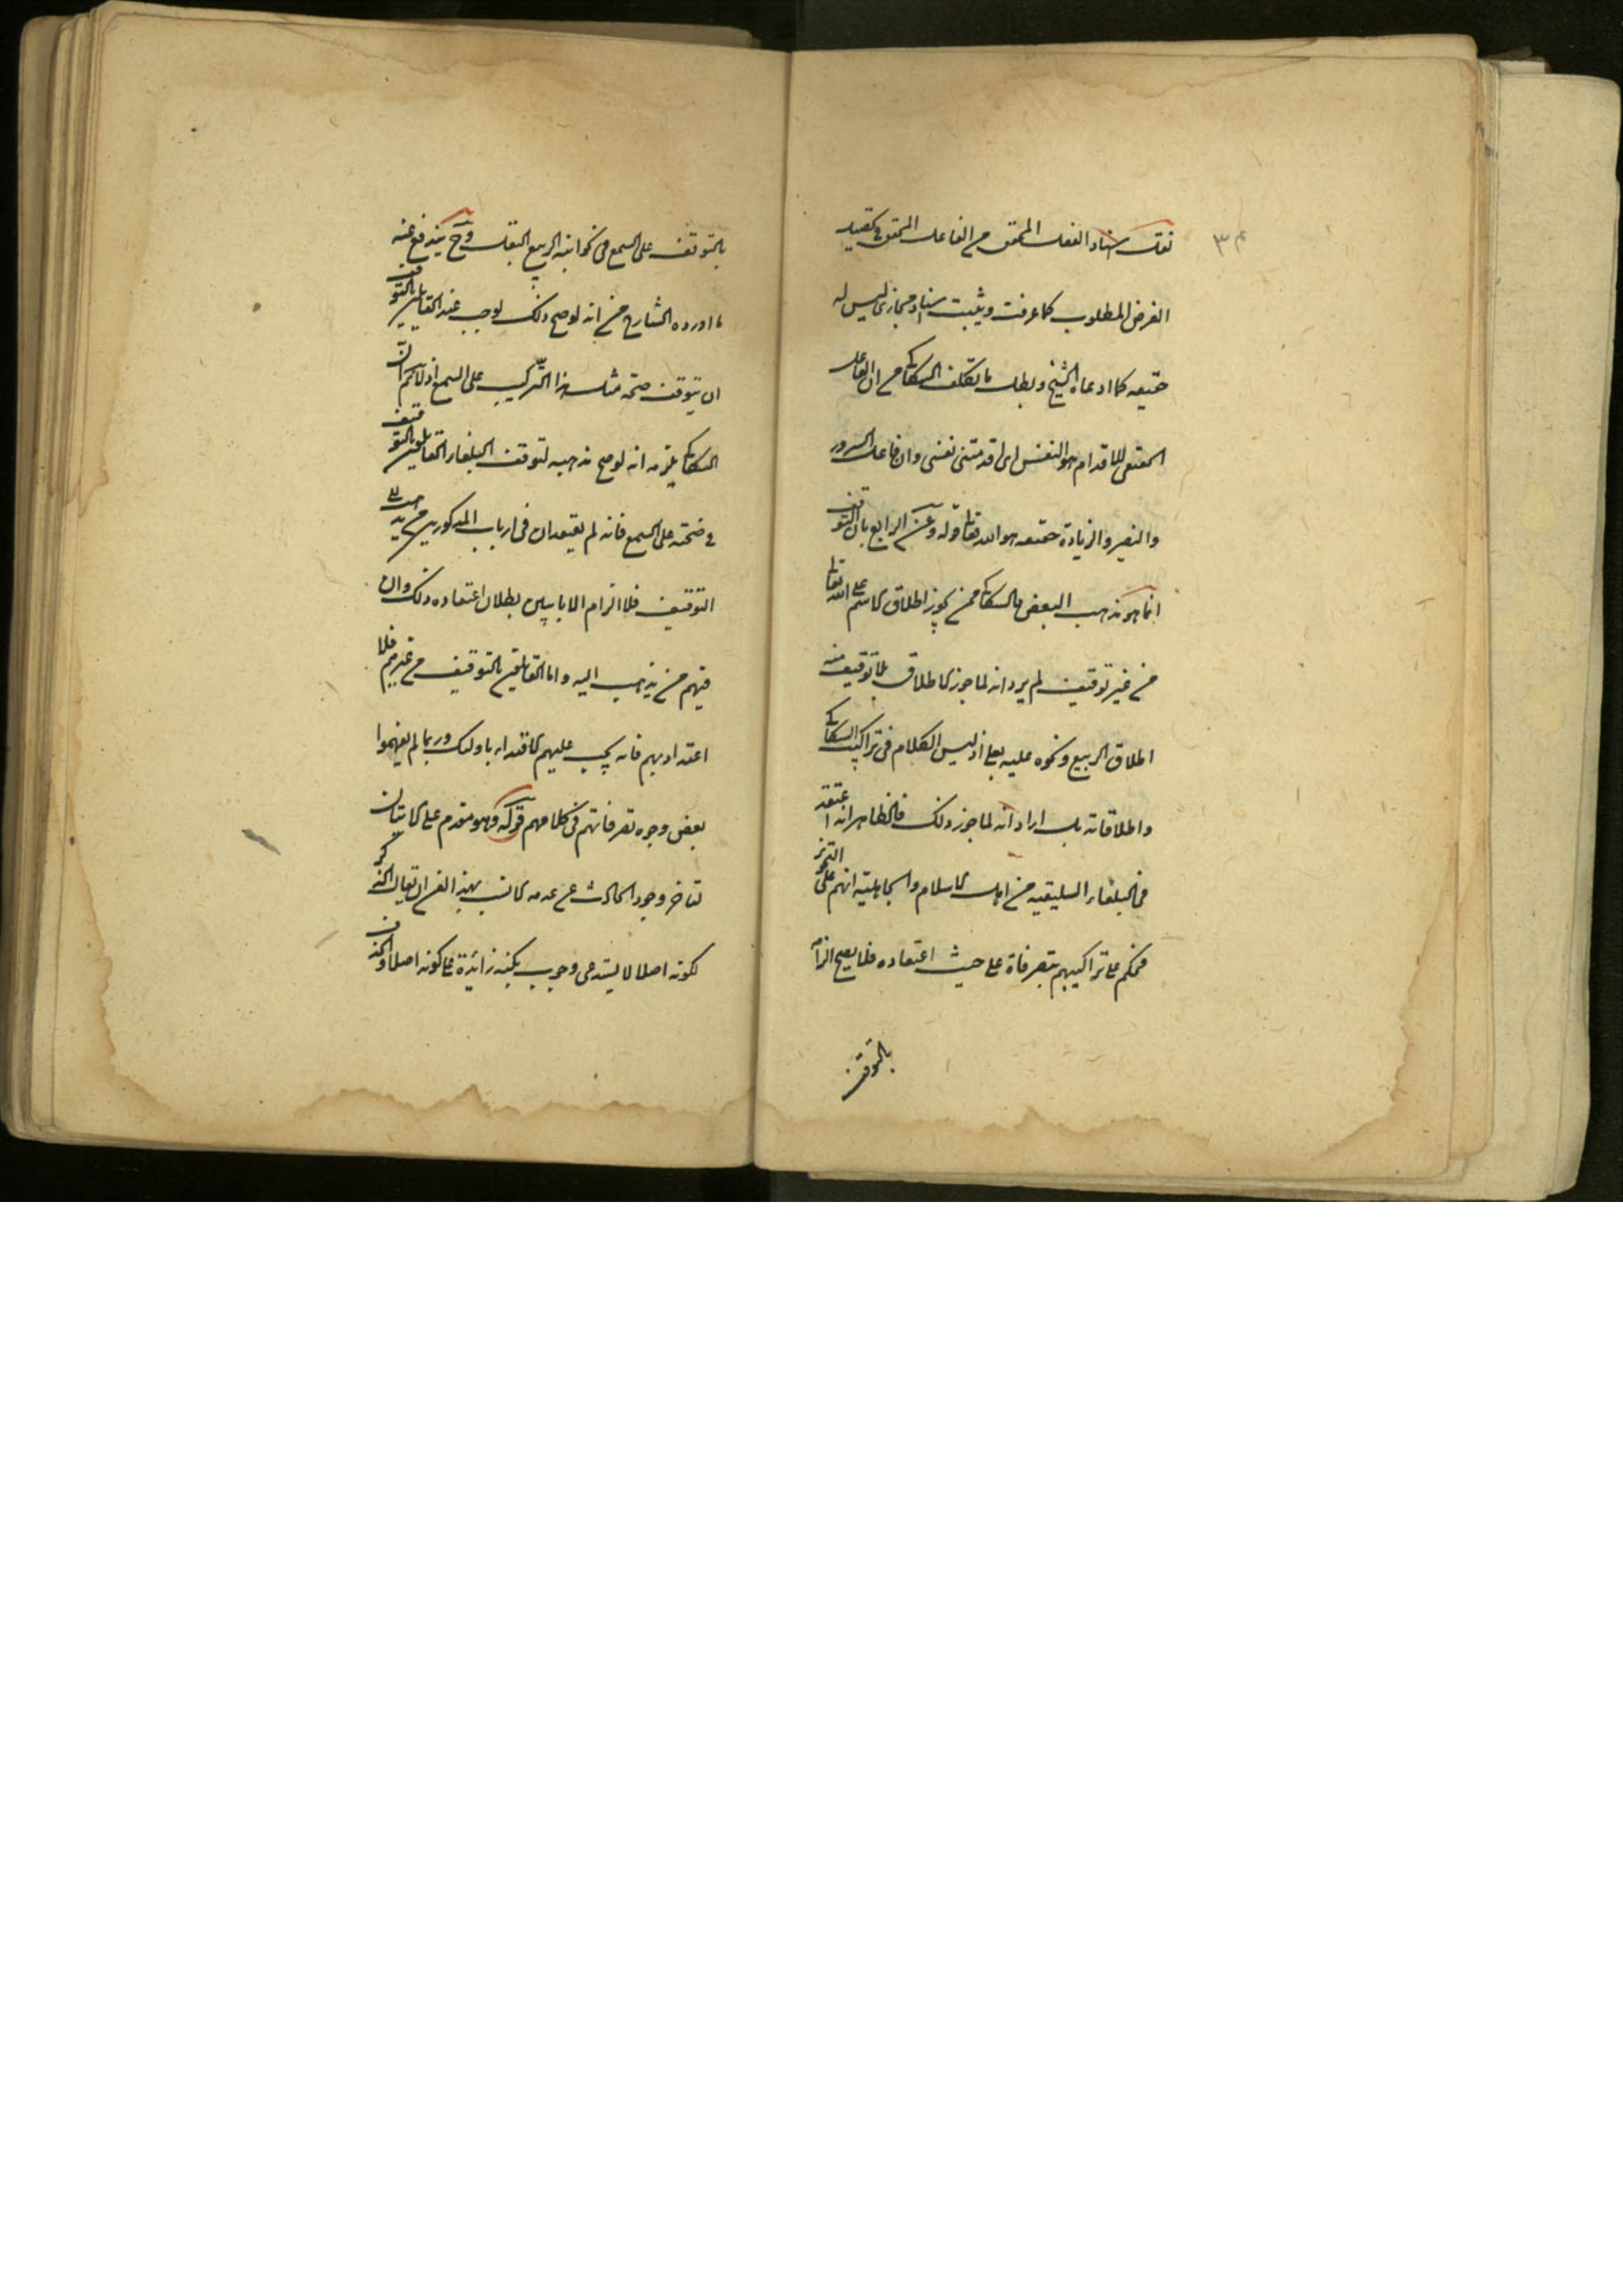 ٣٤
نقل اسناد الفعل المحقق من الفاعل المحقق في تقييد
الغرض المطلوب كما عرفت ويثبت اسناد مجازى ليس له
حقيقة كما ادعاه الشيخ وبطل ما تكلف السكاكى من ان الفاعل
المقتضى للاقدام هو النفس اى اقدمتنى نفسى وان فاعل السرور
والنصير والزيادة حقيقه هو الله تعالى قوله وعن الرابع بان التوقف
انما هو مذهب البعض والسكاكى ممن يجوز اطلاق الاسم على الله تعالى
من غير توقيف لم يرد انه لما جوز الاطلاق بلا توقيف منه
اطلاق الربيع ونحوه عليه تعالى اذ ليس الكلام فى تراكيب السكاكى
واطلاقاته بل اراد انه لما جوز ذلك فالظاهر انه اعتقد
فى البلغاء السليقية من اهل الاسلام والجاهلية انهم على التجويز
فحكم على تراكيبهم بتصرفاة على حيث اعتقاده فلا يصح الزامه
بالتوقف
بالتوقف على السمع فى نحو انبت الربيع البقل وح يندفع عنه
ما اورده الشارح من انه لو صح ذلك لوجب عند القايلين بالتوقف
ان يتوقف صحة مثل هذا التركيب على السمع اذ لا يحكم ان
السكاكى يلزمه انه لو صح مذهبه لتوقف البلغاء القايلين بالتوقيف
فى صحته على السمع فانه لم يعتقد ان فى ارباب المذكورين من يدعى
التوقيف فلا الزام الا بابيان بطلان اعتقاده ذلك وان
فيهم من يذهب اليه واما القايلين بالتوقيف من غيرهم فلا
اعتداد بهم فانه يجب عليهم الاقتداء باولئك وربما لم يفهموا
بعض وجوه تصرفاتهم فى كلامهم قوله وهو مقدم على الاتيان
لتاخر وجود الحادث عن عدمه الانسب بهذا الغرض ان يقال الذكر
لكونه اصلا لا يستدعى وجوب نكتة زائدة على كونه اصلا والحذف